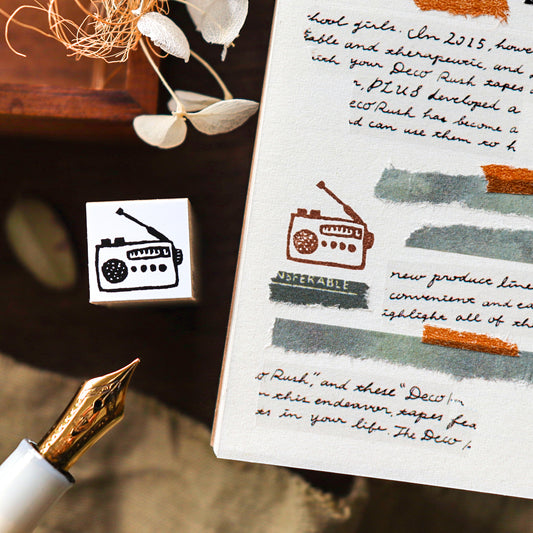 hool girls. In 2015, howe
able and therapeutic, and
ith your Deco Rush tapes a
PLUS developed a
eco Rush has become a
d can use them to h
NSFERABLE
new produce line
convenient and ea
ighlight all of th
o Rush", and these "Deco
n this endeavor, tapes fea
ts in your life. The Deco